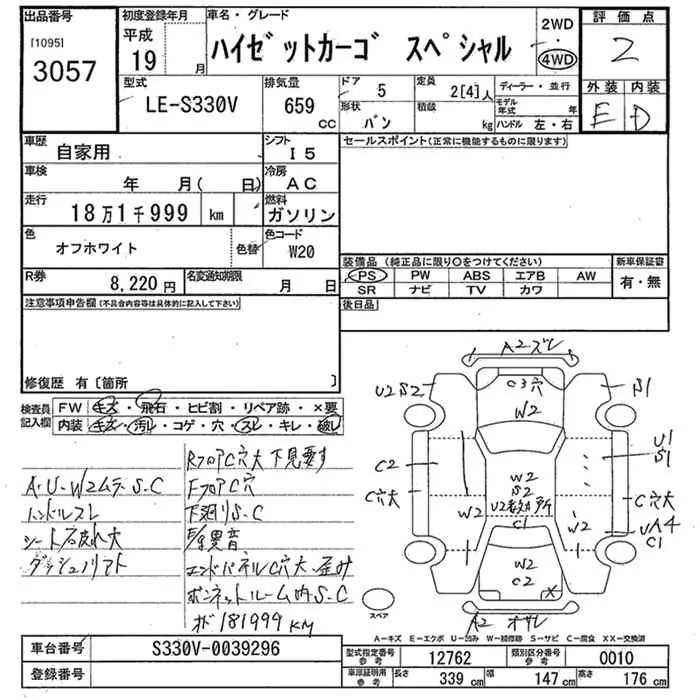 出品番号
[1095]
3057
初度登録年月
平成
19 月
車名・グレード
ハイゼットカーゴ スペシャル
2WD
・
4WD
評価点
2
外装 内装
E D
型式
LE-S330V
排気量
659 CC
ドア
5
形状
バン
定員
2[4]人
積載
kg
ディーラー・並行
モデル年式 年
ハンドル 左・右
車歴
自家用
シフト
I5
車検
年 月( 日)
冷房
AC
走行
18万1千999 km
燃料
ガソリン
色
オフホワイト
色替
色コード
W20
R券
8,220円
名変通知期限
月 日
セールスポイント(正常に機能するものに限ります)
装備品(純正品に限り○をつけてください)
PS PW ABS エアB AW
SR ナビ TV カワ
新車保証書
有・無
後日品
注意事項申告欄(不具合内容等は具体的に記入して下さい)
修復歴 有〔箇所 〕
検査員記入欄
FW キズ・飛石・ヒビ割・リペア跡・×要
内装 キズ・汚レ・コゲ・穴・スレ・キレ・破レ
A・U・W2ムラ S.C
ハンドルスレ
シート破れ大
ダッシュノリアト
RフロアC穴大 下見要す
FフロアC穴
下廻りS.C
E/g異音
エンドパネルC穴大・歪み
ボンネットルーム内S.C
メーター181999KM
A2ズレ
C3穴
W2
U2S2
S1
C2
C穴大
W2
W2
S2
U2多数ヶ所
C1
U1
S1
C穴大
UA4
C1
W2
W2
C2
X
A2 オサレ
スペア
A-キズ E-エクボ U-凹み W-補修跡 S-サビ C-腐食 XX-交換済
車台番号
S330V-0039296
登録番号
型式指定番号 参考
12762
類別区分番号 参考
0010
車庫証明用 参考
長さ 339 cm
幅 147 cm
高さ 176 cm